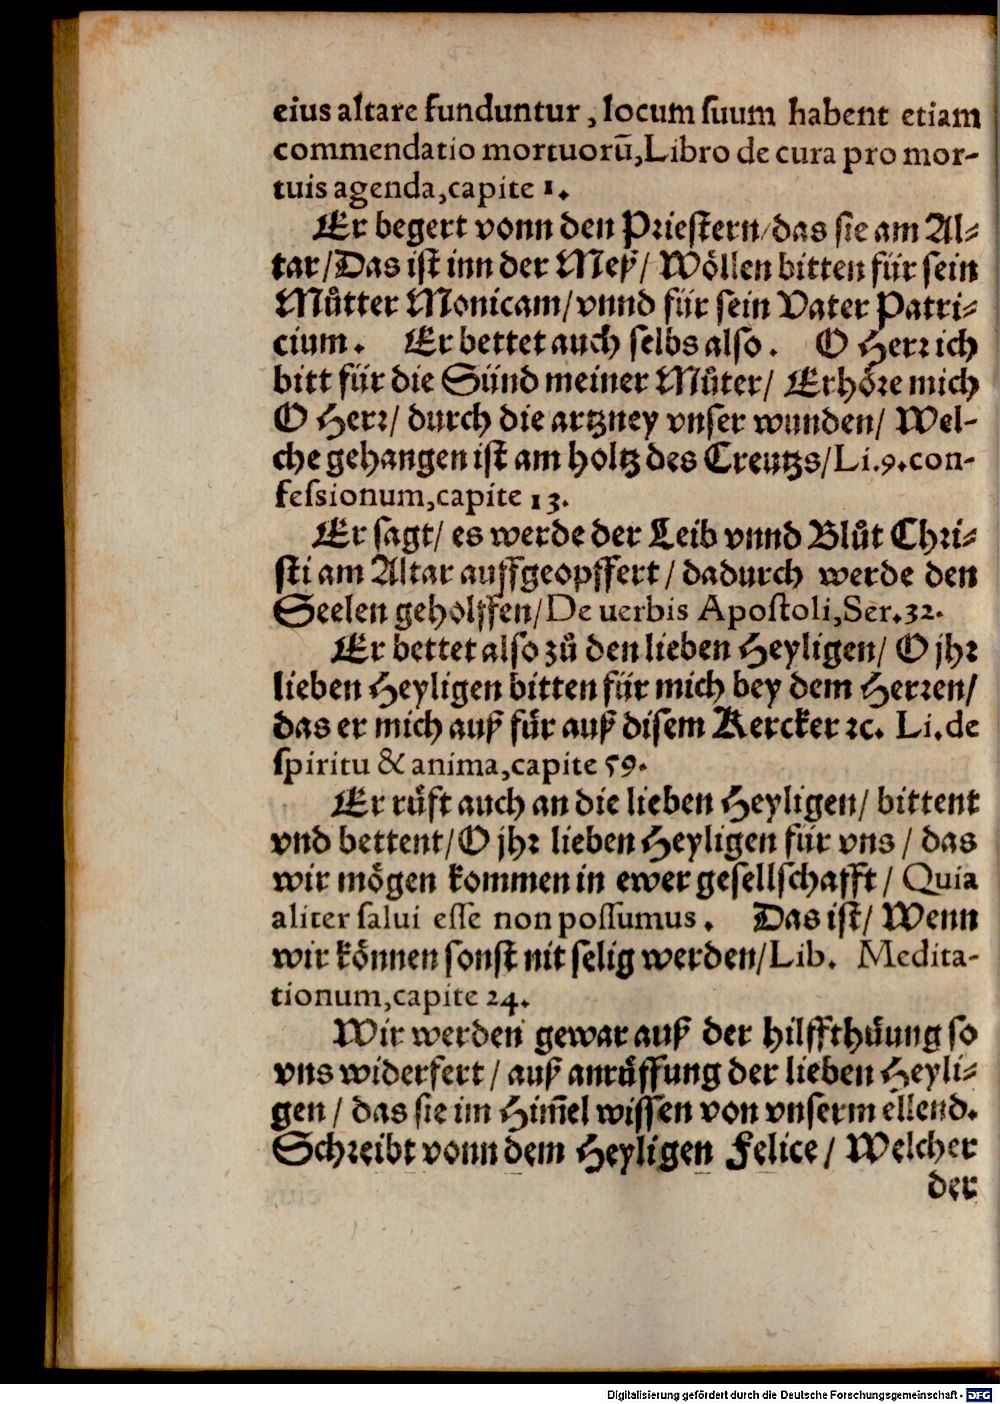 eius altare funduntur, locum suum habent etiam
commendatio mortuorũ, Libro de cura pro mor-
tuis agenda, capite 1.
Er begert vonn den Priestern/ das sie am Al⸗
tar/ Das ist inn der Meß/ Wöllen bitten für sein
Můtter Monicam/ vnnd für sein Vater Patri⸗
cium. Er bettet auch selbs also. O Herr ich
bitt für die Sünd meiner Můter/ Erhöre mich
O Herr/ durch die artzney vnser wunden/ Wel-
che gehangen ist am holtz des Creutzs/ Li. 9. con-
fessionum, capite 13.
Er sagt/ es werde der Leib vnnd Blůt Chri⸗
sti am Altar auffgeopffert/ dadurch werde den
Seelen geholffen/ De uerbis Apostoli, Ser. 32.
Er bettet also zů den lieben Heyligen/ O jhr
lieben Heyligen bitten für mich bey dem Herren/
das er mich auß für auß disem Kercker ꝛc. Li. de
spiritu & anima, capite 59.
Er růft auch an die lieben Heyligen/ bittent
vnd bettent/ O jhr lieben Heyligen für vns/ das
wir mögen kommen in ewer gesellschafft/ Quia
aliter salui esse non possumus. Das ist/ Wenn
wir können sonst nit selig werden/ Lib. Medita-
tionum, capite 24.
Wir werden gewar auß der hilffthüung so
vns widerfert/ auß anrůffung der lieben Heyli⸗
gen/ das sie im Him̃el wissen von vnserm ellend.
Schreibt vonn dem Heyligen Felice/ Welcher
der
Digitalisierung gefördert durch die Deutsche Forschungsgemeinschaft - DFG